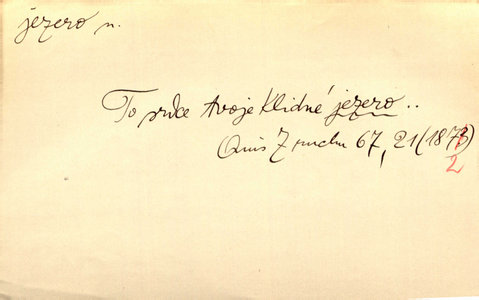 jezero n.
To srdce tvoje klidné jezero..
Quis Z ruchu 67, 21 (1873)
2